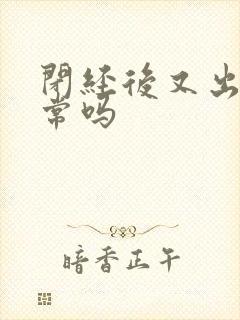 閉經後又出
常吗
暗香正午